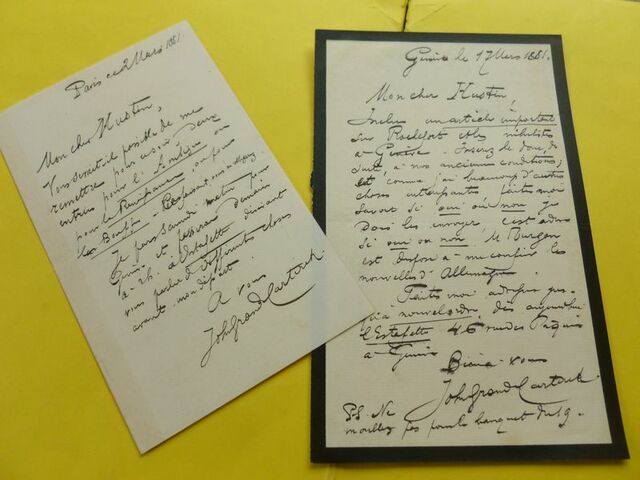 Paris ce 2 Mars 1881.
Mon cher Hustin,
Vous serait-il possible de me
remettre pour ce soir deux
entrées pour l'
pour la Renaissance, ou pour
les Bouffes-Parisiens,
Je pars Samedi matin pour
Genève et passerai demain
à 2h. à l'Estafette désirant
vous parler de différentes choses
avant mon départ.
A vous
John GrandCarteret
Genève le 17 Mars 1881.
Mon cher Hustin,
Inclus un article important
sur Rochefort et les nihilistes
à Genève. Insérez-le donc, de
suite, à nos anciennes conditions,
et, comme j'ai beaucoup d'autres
choses intéressantes faites moi
savoir si oui ou non je
dois les envoyer, c'est-à-dire
si oui ou non, M.
est disposé à me confier les
nouvelles d'Allemagne.
Faites moi adresser jus-
qu'à nouvel ordre, dès aujourd'hui
l'Estafette 46 rue des Pâquis
à Genève
Bien à vous
John GrandCarteret
P.S. Ne
m'oubliez pas pour le banquet du 19.